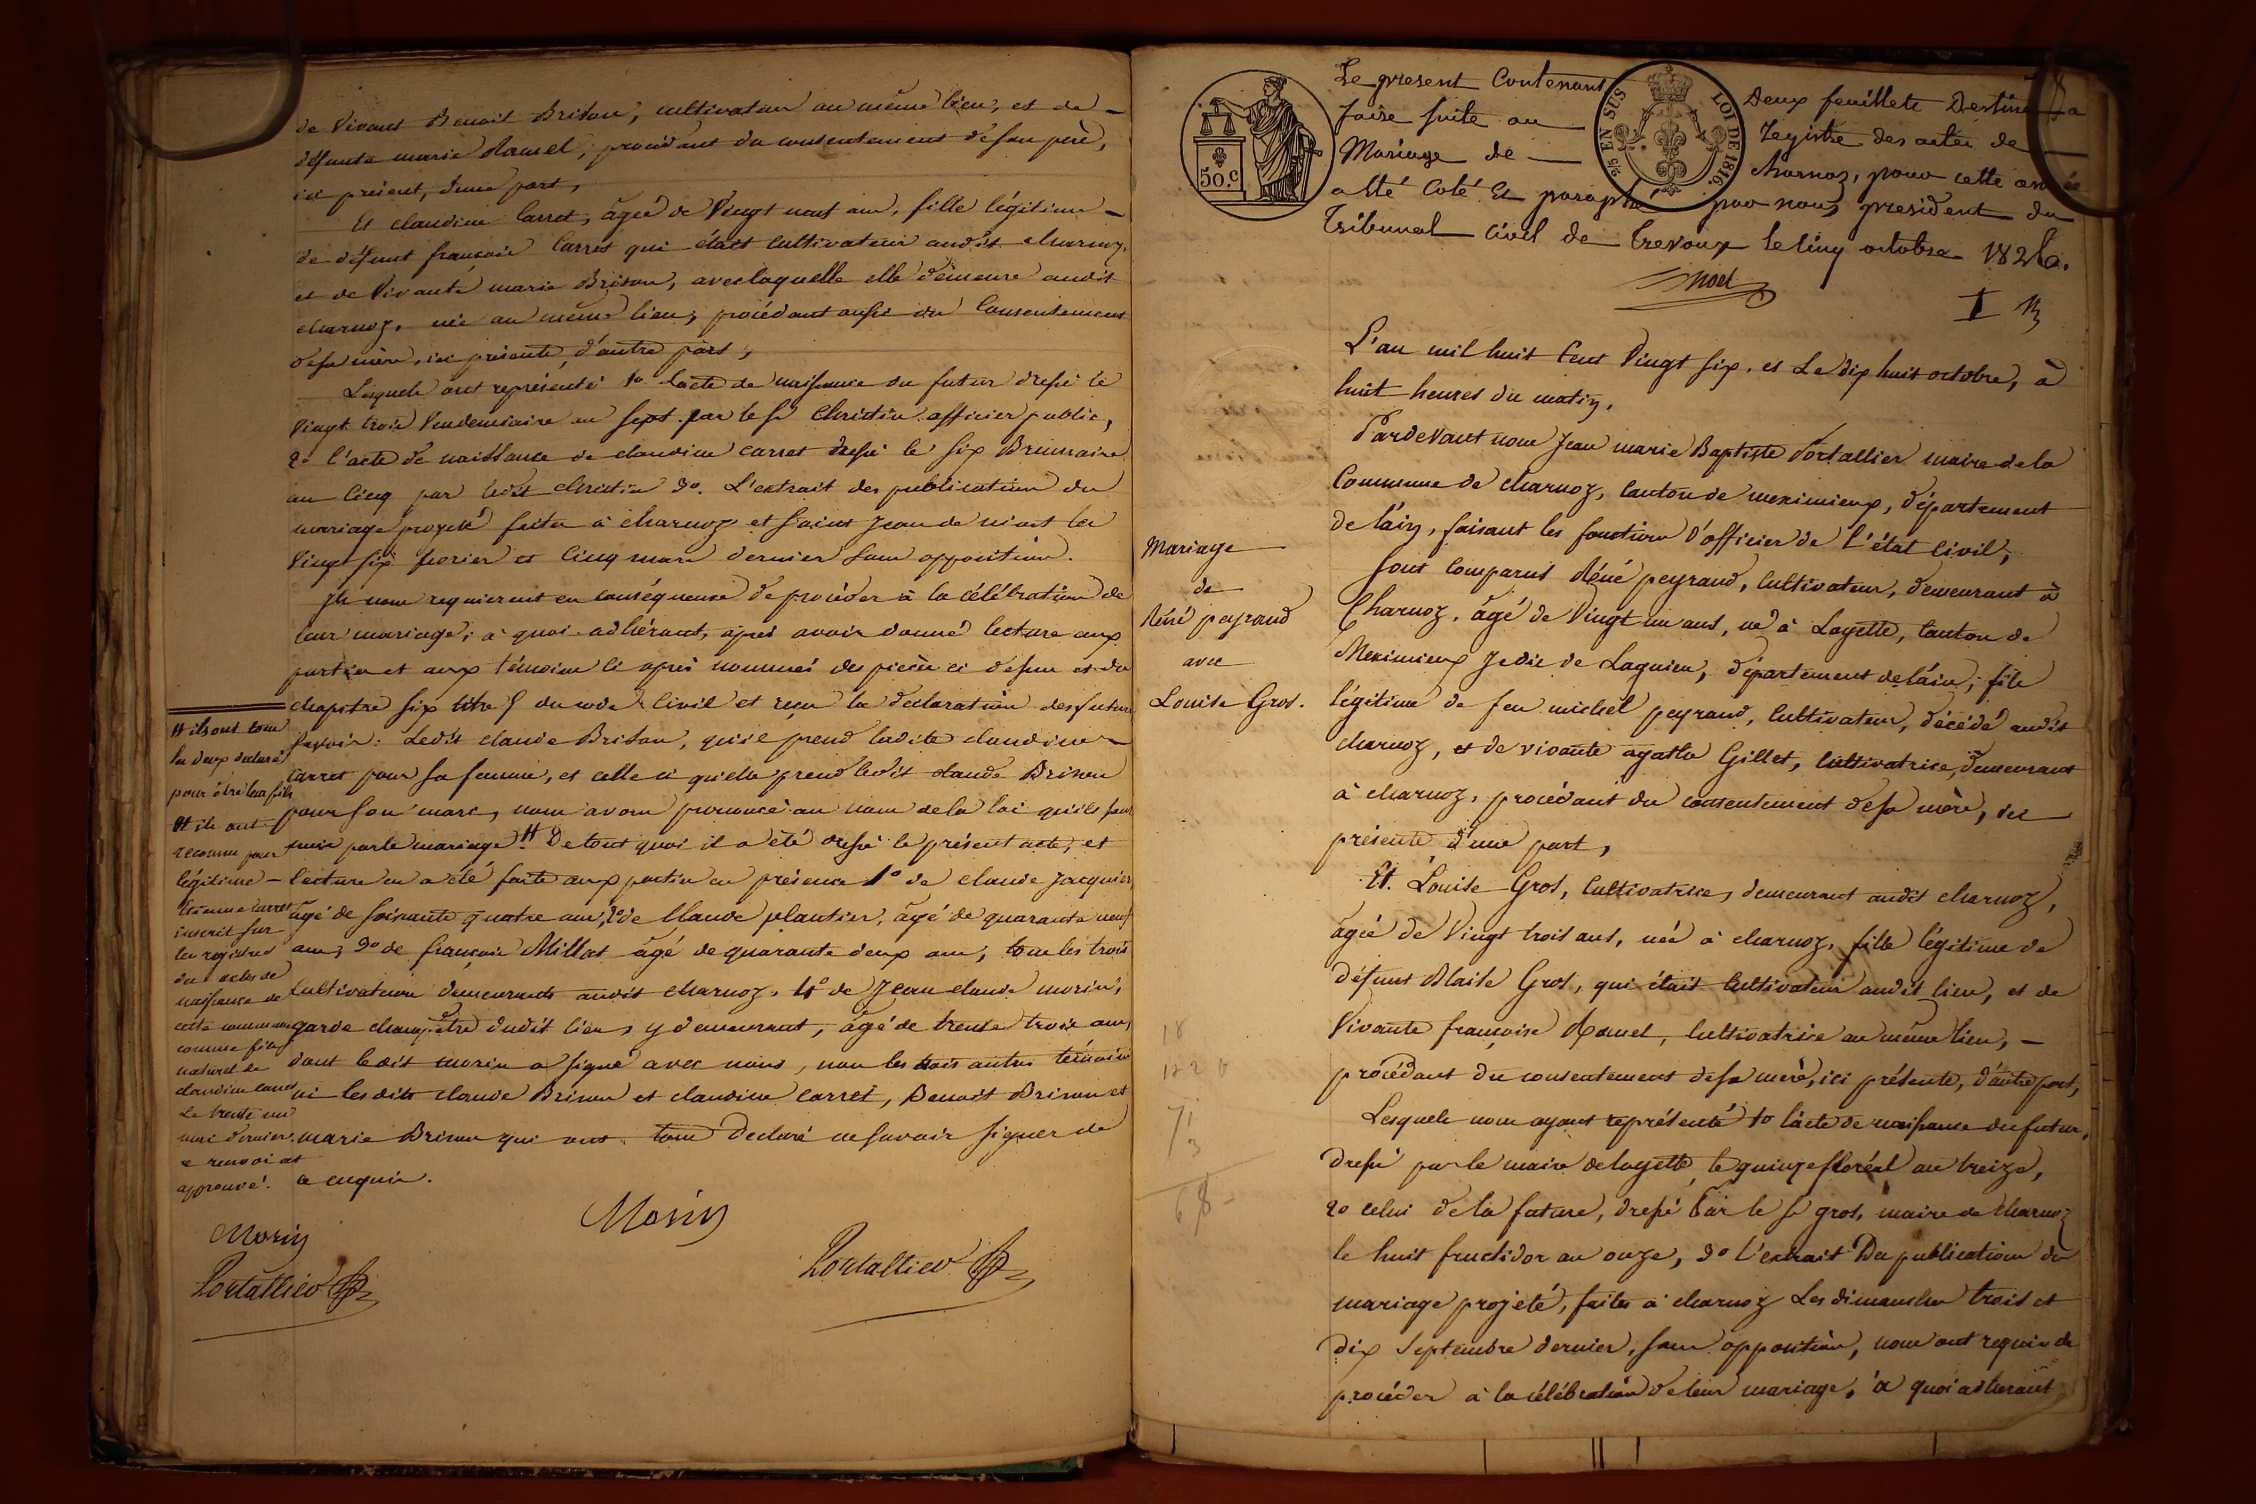 de Vivant Benoit Brison, cultivateur au même lieu, et de
défunte marie Ramel, procédant du consentement de son père,
ici présent, d'une part,
Et claudine Carret, âgée de Vingt neuf ans, fille légitime
de défunt françois Carret qui était Cultivateur audit charnoz,
et de Vivante marie Brison, avec laquelle elle demeure audit
charnoz, née au même lieu, procédant aussi du Consentement
de sa mère, ici présente, d'autre part,
Lesquels ont représenté 1o l'acte de naissance du futur dressé le
Vingt trois Vendemiaire an Sept par le Sr Christin officier public,
2o l'acte de naissance de claudine carret dressé le Six Brumaire
an Cinq par ledit christin 3o. L'extrait des publications du
mariage projeté faites à charnoz et Saint Jean de niost les
Vingt six fevrier et Cinq mars dernier sans opposition.
Ils nous requierent en conséquence de procéder à la célébration de
leur mariage; à quoi adhérant, après avoir donné lecture aux
parties et aux témoins ci après nommés des pieces ci dessus et du
chapitre six titre 5 du code Civil et reçu la declaration des futurs
Savoir: Ledit claude Brison, qu'il prend ladite claudine
Carret pour sa femme, et celle ci qu'elle prend ledit claude Brison
pour son mari, nous avons prononcé au nom de la loi qu'ils sont
unis par le mariage. # De tout quoi il a été dressé le présent acte, et
lecture en a été faite aux parties en présence 1o de claude Jacquier,
âgé de soixante quatre ans, 2o de Claude plantier, âgé de quarante neuf
ans, 3o de françois Millat âgé de quarante deux ans, tous les trois
Cultivateurs demeurants audit charnoz, 4o de Jean claude morin,
garde champêtre dudit lieu, y demeurant, âgé de trente trois ans,
dont ledit morin a signé avec nous, non les trois autres témoins
ni lesdits claude Brison et claudine carret, Benoit Brison et
marie Brison qui ont tous declaré ne savoir signer de
ce enquis.
# ils ont tous
les deux declaré
pour être leur fils
# ils ont
reconnu pour
légitime
Etienne Carret
inscrit sur
les registres
des actes de
naissance de
cette commune
comme fils
naturel de
claudine carret
Le trente un
mai dernier.
ce renvoi est
approuvé.
Morin
Portallier
Morin
Portallier
50.C
2/5 EN SUS
LOI DE 1816.
Le present Contenant Deux feuillets Destinés a
faire suite au Registre des actes de
Mariage de Charnoz, pour cette année
a été Coté Et paraphé par nous president du
Tribunal Civil de Trevoux le Cinq octobre 1826.
Noel
L'an mil huit Cent Vingt six, et Le dix huit octobre, à
huit heures du matin,
Pardevant nous Jean marie Baptiste Portallier maire de la
Commune de charnoz, Canton de meximieux, département
de l'ain, faisant les fonctions d'officier de l'état Civil,
Sont Comparus Réné peyraud, Cultivateur, demeurant à
Charnoz, âgé de Vingt un ans, né à Loyette, Canton de
Meximieux Jedis de Lagnieu, département de l'ain; fils
légitime de feu michel peyraud, Cultivateur, décédé audit
charnoz, et de vivante agathe Gillet, Cultivatrice, demeurant
à charnoz, procédant du consentement de sa mère, ici
présente d'une part,
Et. Louise Gros, Cultivatrice, demeurant audit charnoz,
âgée de Vingt trois ans, née à charnoz, fille légitime de
défunt Blaise Gros, qui était Cultivateur audit lieu, et de
Vivante françoise Ramel, Cultivatrice au même lieu,
procédant du consentement de sa mère, ici présente, d'autre part,
Lesquels nous ayant représenté 1o l'acte de naissance du futur,
dressé par le maire de loyette, le quinze floréal an treize,
2o celui de la future, dressé Par le Sr gros, maire de charnoz
le huit fructidor an onze, 3o l'extrait Des publications du
mariage projeté, faites à charnoz Les dimanches trois et
dix Septembre dernier, sans opposition, nous ont requis de
procéder à la célébration de leur mariage, à quoi adherant
Mariage
de
Réné peyraud
avec
Louise Gros.
18
122 6
71
3
68